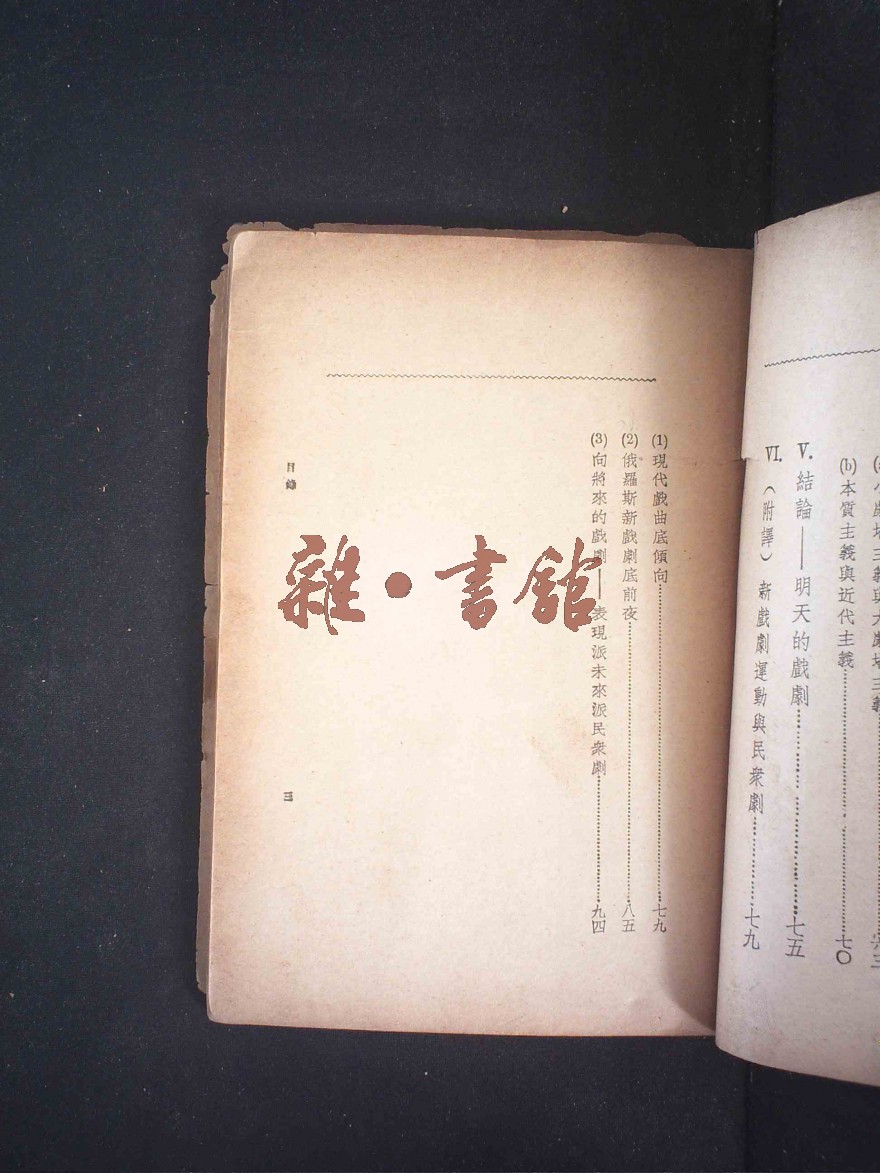 小劇場主義與大劇場主義……六三
(b)本質主義與近代主義……七〇
V. 結論——明天的戲劇……七五
VI. (附譯)新戲劇運動與民衆劇……七九
(1)現代戲曲底傾向……七九
(2)俄羅斯新戲劇底前夜……八五
(3)向將來的戲劇——表現派未來派民衆劇……九四
目錄
三
雜·書館